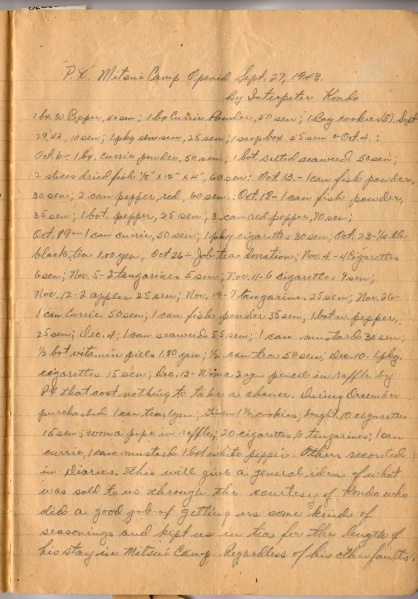 "P.X." Mitsui Camp Opened Sept. 27, 1943.
By Interpeter Kondo
1 bx. W. Pepper, 20 sen; 1 bg Currie Powder, 50 sen; 1 Bag cookers Sept
29, 43, 10 sen; 1 pkg sen sen, 25 sen; 1 soap box 55 sen & Oct. 4:
Oct. 6 - 1 bg. currie powder, 50 sen, 1 bot. salted seaweed 50 sen;
2 slices dried fish ½" x 12" x 4", 60 sen: Oct 13. - 1 can fish powder,
30 sen; 2 can pepper, red, 60 sen: Oct. 18 - 1 can fish powder,
35 sen; 1 bot. pepper, 25 sen; 3 can red pepper, 70 sen;
Oct. 19 - 1 can currie, 50 sen; 1 pkg cigarettes 30 sen; Oct. 23 - ¼ lb
black tea 1.00 yen, Oct 26 - Job tea donation; Nov. 4 - 4 cigarettes
6 sen; Nov. 5 - 2 tangarines 5 sen; Nov. 11 - 6 cigarettes 9 sen;
Nov. 12 - 2 apples 25 sen; Nov. 19 - 7 tangarines 25 sen; Nov. 26 -
1 can Currie 50 sen; 1 can fish powder 35 sen, 1 bot w. pepper,
25 sen; Dec. 4; 1 can seaweed 55 sen; 1 can mustard 30 sen,
½ bot vitamin pills 1.80 yen; ½ can tea 50 sen; Dec. 10 - 1 pkg.
cigarettes 15 sen; Dec. 13 - Won a 2 yen pencil in raffle by
84 that cost nothing to take a chance. During December
purchased 1 can tea, 1 yen; 1½ cookies, bought 10 cigarettes
15 sen; won a pipe in raffle; 20 cigarettes, 6 tangarines; 1 can
currie, 1 can mustard 1 bot white pepper. Others recorded
in Diaries. This will give a general idea of what
was sold to us through the courtesy of Kondo who
did a good job of getting us some kinds of
seasonings and kept us in tea for the length of
his stay in Mitsui Camp. Regardless of his other faults.